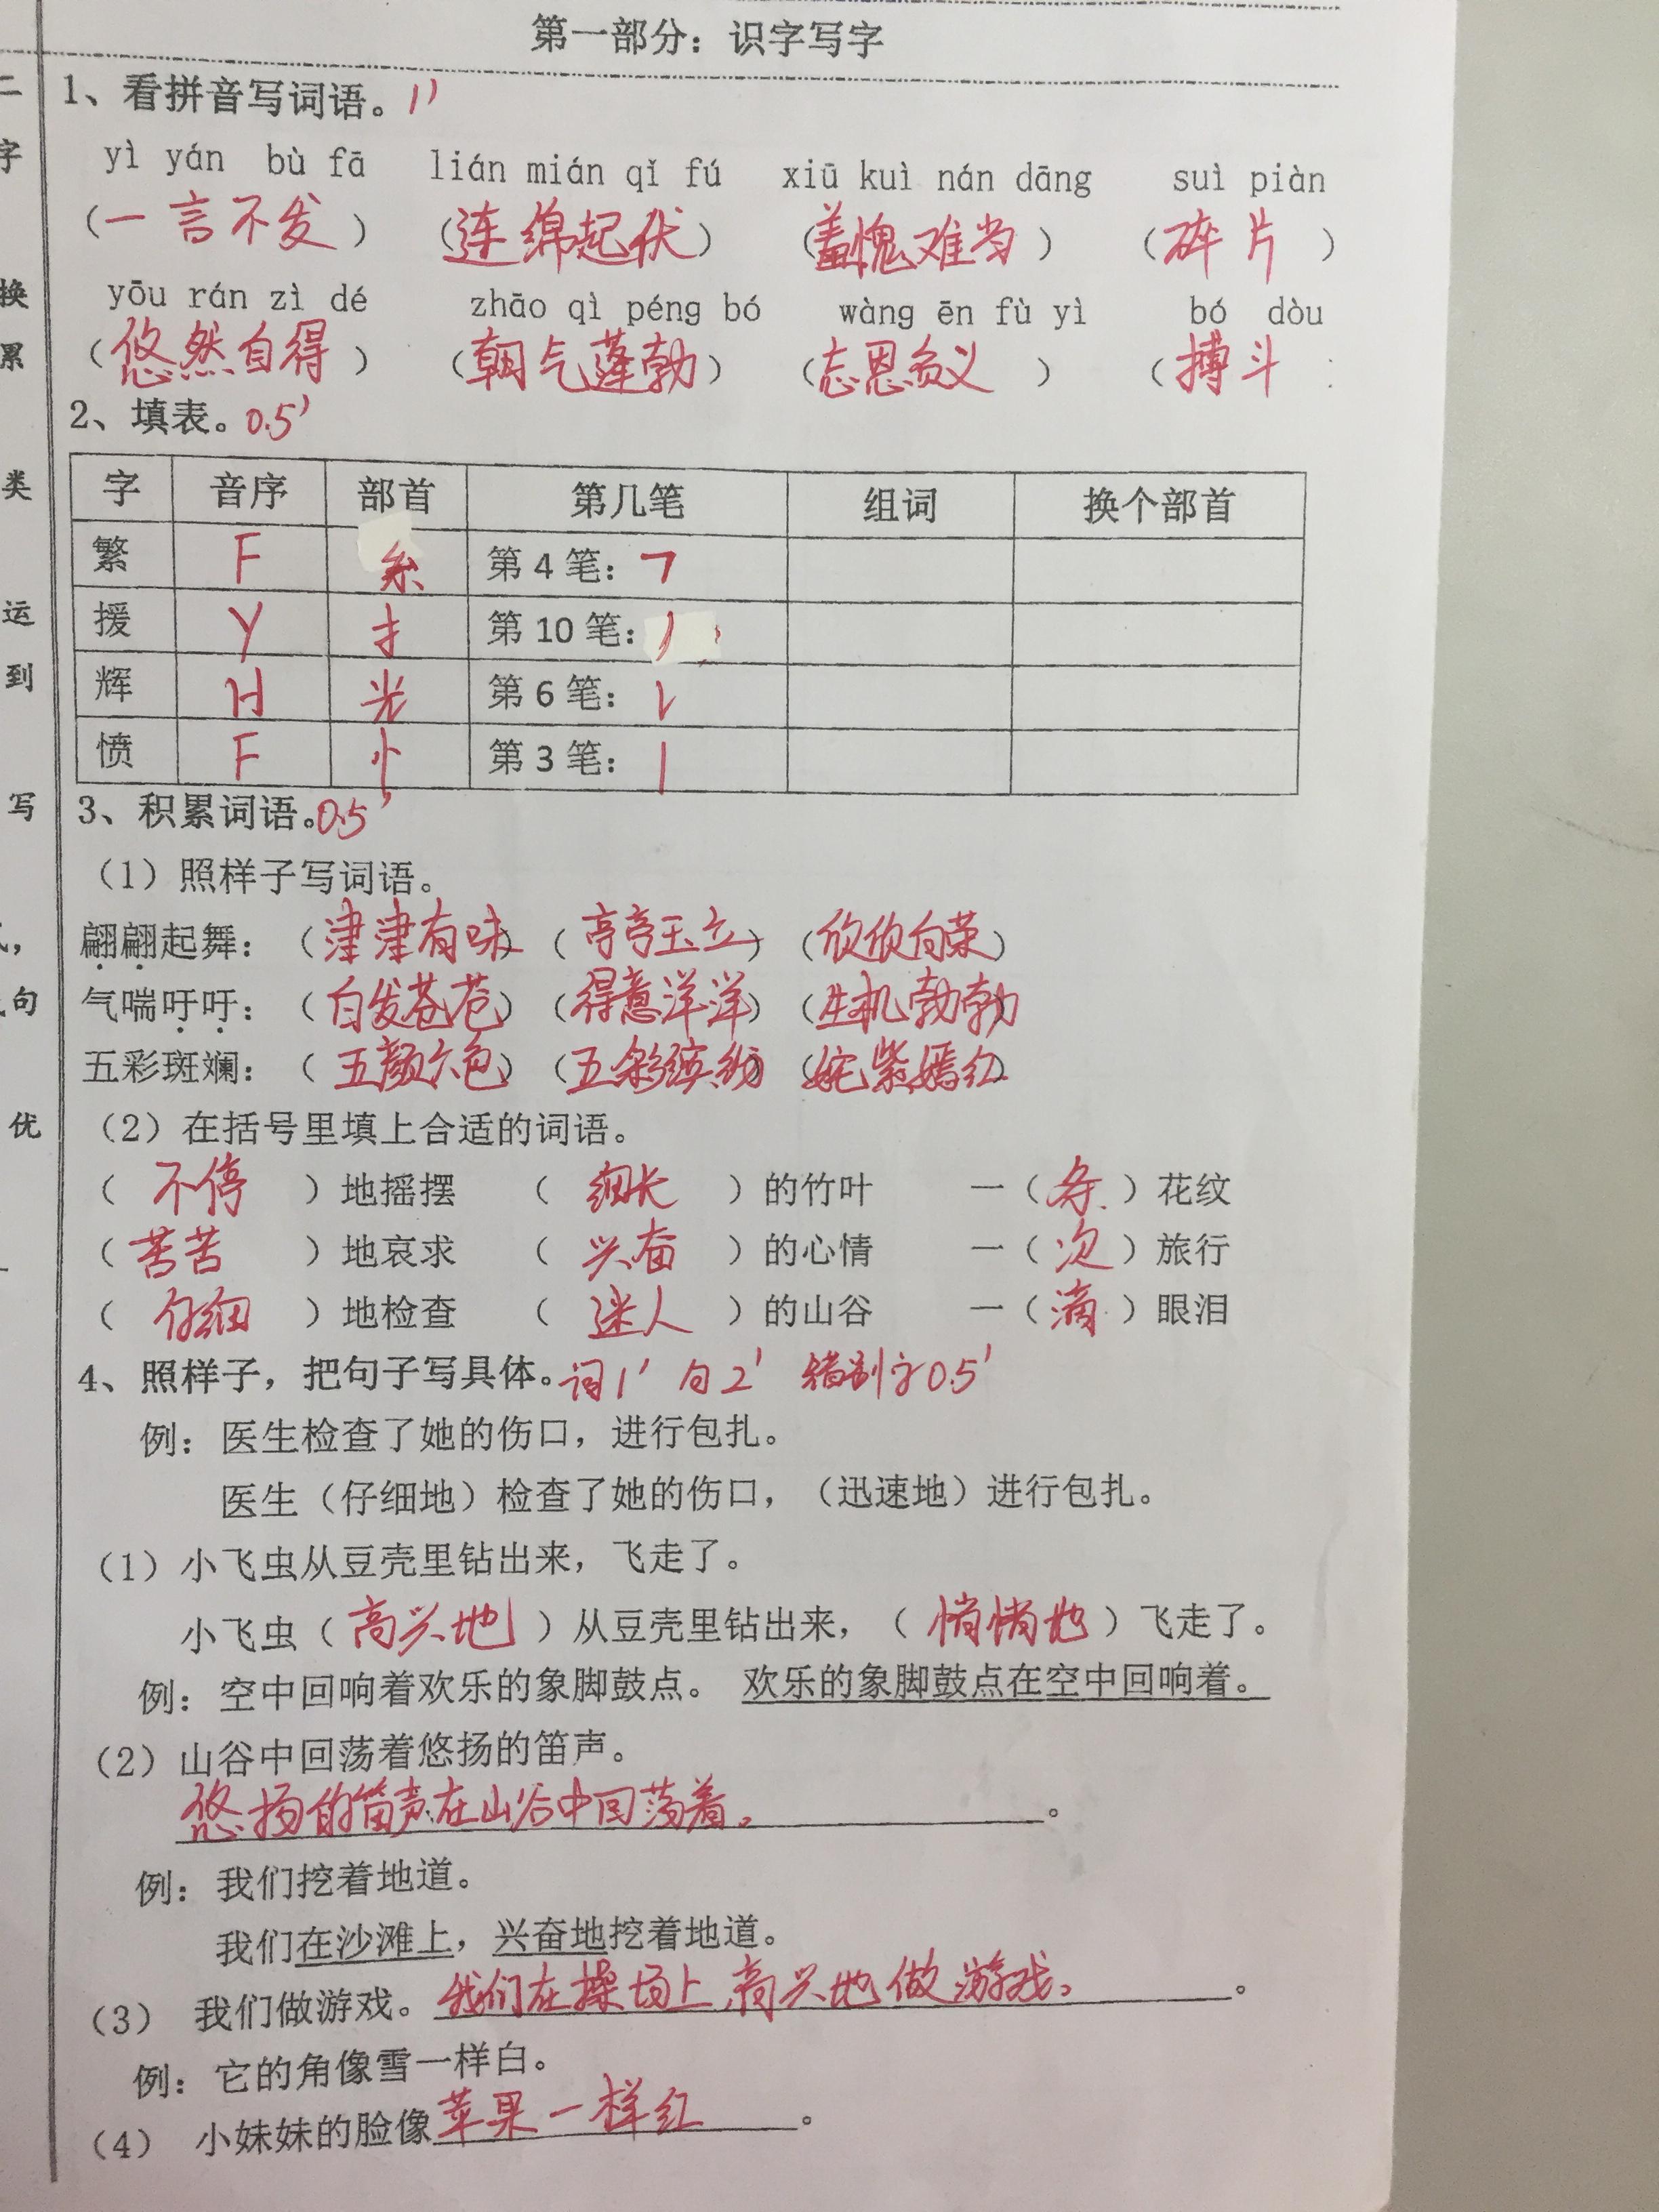 第一部分：识字写字
1、看拼音写词语。1'
yì yán bù fā lián mián qǐ fú xiū kuì nán dāng suì piàn
（一言不发）（连绵起伏）（羞愧难当）（碎片）
yōu rán zì dé zhāo qì péng bó wàng ēn fù yì bó dòu
（悠然自得）（朝气蓬勃）（忘恩负义）（搏斗
2、填表。0.5'
字 音序 部首 第几笔 组词 换个部首
繁 F 糸 第 4 笔：㇕
援 Y 扌 第 10 笔：丿
辉 H 光 第 6 笔：㇟
愤 F 忄 第 3 笔：丨
3、积累词语。0.5'
（1）照样子写词语。
翩翩起舞：（津津有味）（亭亭玉立）（欣欣向荣）
气喘吁吁：（白发苍苍）（得意洋洋）（生机勃勃）
五彩斑斓：（五颜六色）（五彩缤纷）（姹紫嫣红）
（2）在括号里填上合适的词语。
（不停）地摇摆 （细长）的竹叶 一（条）花纹
（苦苦）地哀求 （兴奋）的心情 一（次）旅行
（仔细）地检查 （迷人）的山谷 一（滴）眼泪
4、照样子，把句子写具体。词1' 句2' 错别字0.5'
例：医生检查了她的伤口，进行包扎。
医生（仔细地）检查了她的伤口，（迅速地）进行包扎。
（1）小飞虫从豆壳里钻出来，飞走了。
小飞虫（高兴地）从豆壳里钻出来，（悄悄地）飞走了。
例：空中回响着欢乐的象脚鼓点。 欢乐的象脚鼓点在空中回响着。
（2）山谷中回荡着悠扬的笛声。
悠扬的笛声在山谷中回荡着。。
例：我们挖着地道。
我们在沙滩上，兴奋地挖着地道。
（3） 我们做游戏。我们在操场上,高兴地做游戏。。
例：它的角像雪一样白。
（4） 小妹妹的脸像苹果一样红。
二
字
换
累
类
运
到
写
句
优